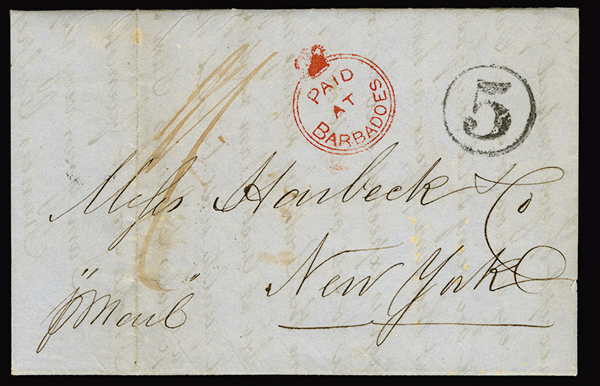 PAID
AT
BARBADOES
5
Mess Horbeck & Co
New York
"pr Mail"